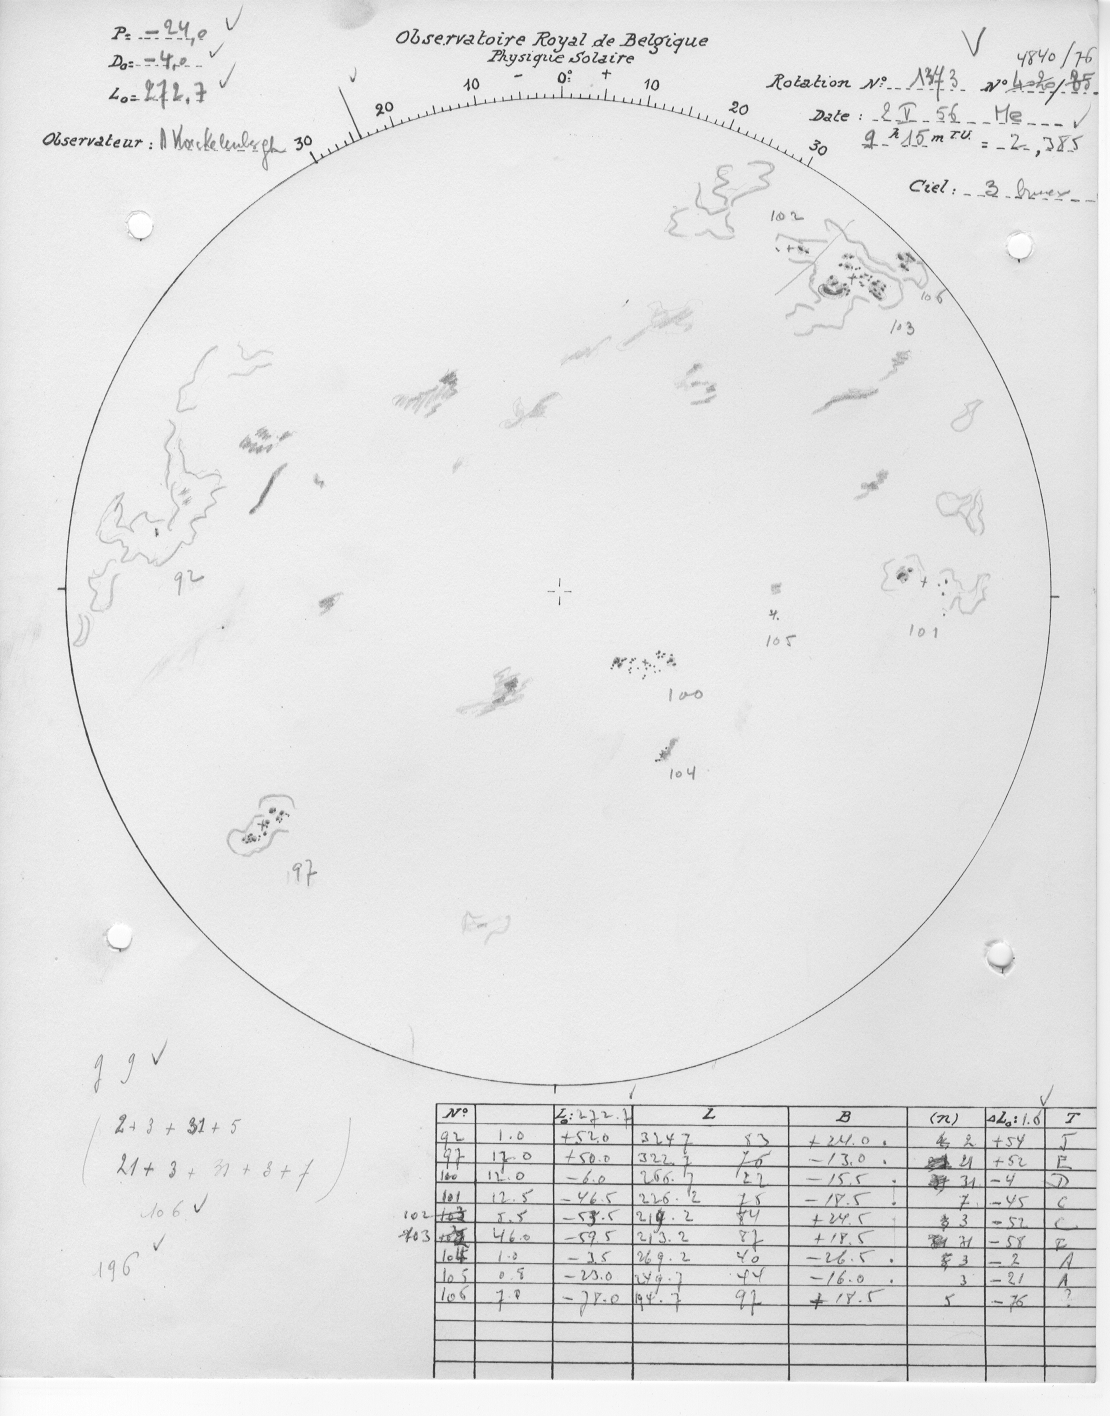 P= -24,0
D₀= -4,0
L₀= 272,7
Observateur :
Observatoire Royal de Belgique
Physique Solaire
- 0: +
30 20 10 10 20 30
4840/76
Rotation N° 1373 N°
Date : 2 V 56 Me
9 h 15 m T.U. = 2,385
Ciel : 3
102
106
103
92
101
105
100
104
97
g 9
2+3+31+5
21+3+31+3+7
106
196
N° L₀: 272.7 L B (n) ΔL₀: 1.6 T
92 1.0 +52.0 324.7 83 +24.0 2 +54 J
97 12.0 +50.0 322.7 76 -13.0 21 +52 E
100 12.0 -6.0 266.7 22 -15.5 31 -4 D
101 12.5 -46.5 226.2 75 -18.5 7 -45 C
102 5.5 84 +24.5 3 -52 C
103 46.0 -59.5 213.2 87 +18.5 31 -58 E
104 1.0 -3.5 269.2 40 -26.5 3 -2 A
105 -23.0 249.7 44 -16.0 3 -21 A
106 -78.0 194.7 97 +18.5 5 -76 ?